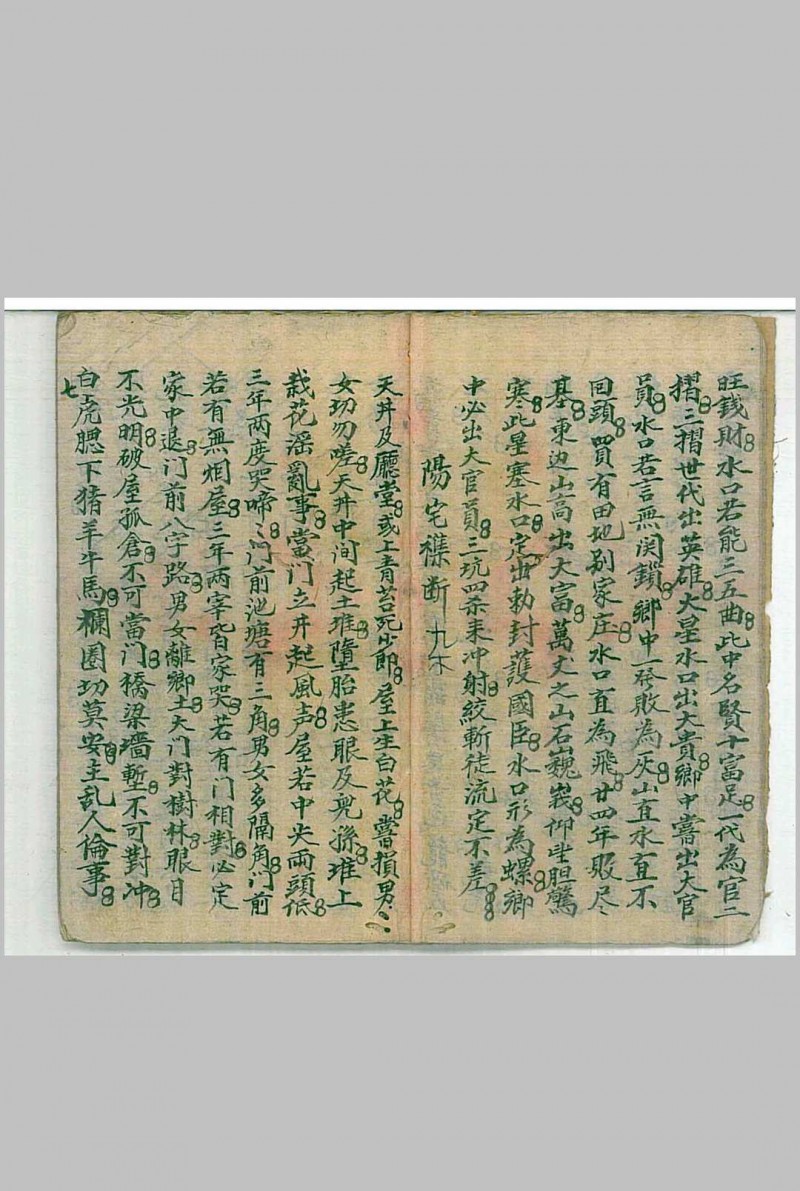 旺錢財水口若能三五曲此中名賢十富足一代為官二
摺三摺世代出英雄大星水口出大貴鄉中嘗出大官
員水口若言無関鎖鄉中一発敗為灰山直水直不
回頭買有田地别家庄水口直為飛廿四年敗尽
基東边山高出大富萬丈之山石巍峩仰坐胆驚
寒此星塞水口定出勅封護國臣水口形為螺鄉
中必出大官員三坑四条来冲射絞斬徒流定不差
陽宅襍断
天井及廳堂或上青苔死少郎屋上生白花嘗損男
女切勿嗟天井中间起土堆墮胎患眼及兒孫堆上
栽花滛亂事當门立井起風声屋若中尖両頭低
三年两度哭啼门前池塘有三角男女多隔角门前
若有無烟屋三年两宰皆家哭若有门相對必定
家中退门前八字路男女離鄉土大门對樹林眼目
不光明破屋孤倉不可當门橋梁墻塹不可對冲
白虎腮下猪羊牛馬欄圈切莫安主乱人倫事
七